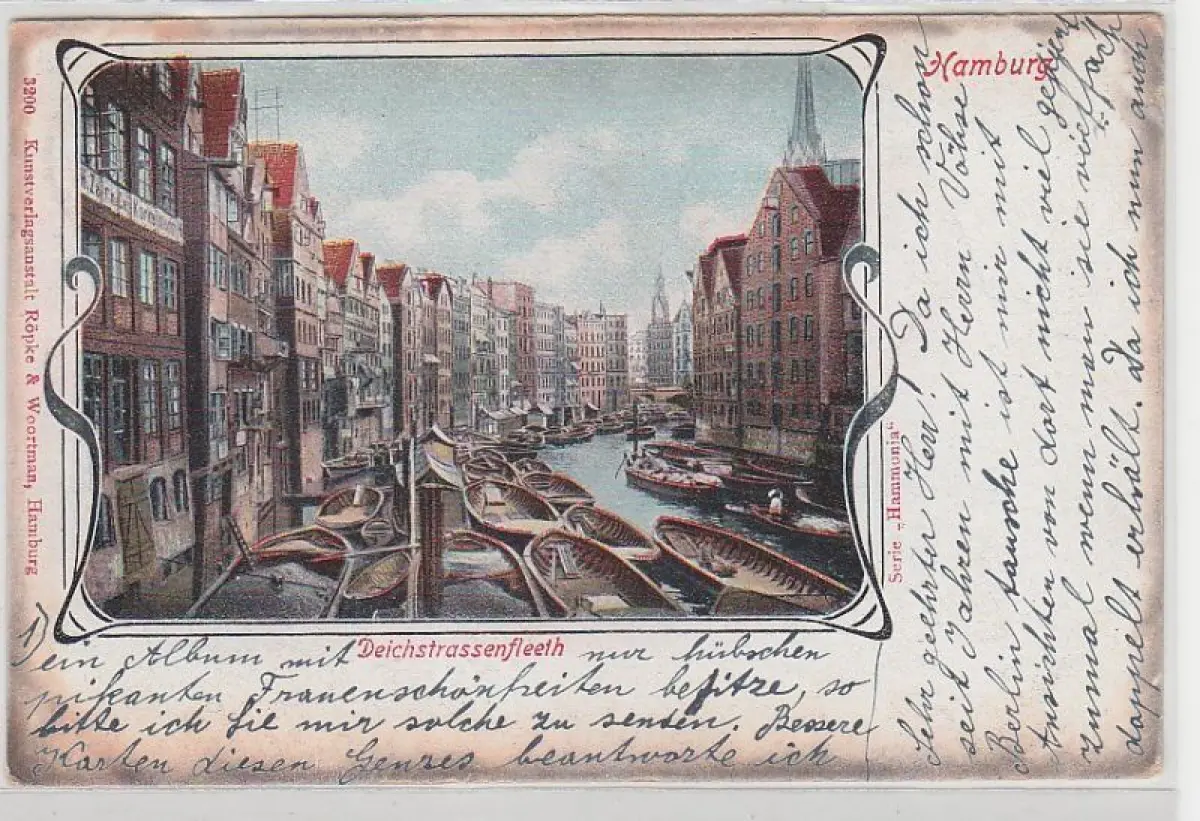 Hamburg
Deichstrassenfleeth
Serie „Hammonia“
3200 Kunstverlagsanstalt Röpke & Woortman, Hamburg
Sehr geehrter Herr! Da ich schon
seit Jahren mit Herrn Vöhse
Berlin tausche ist mir mit
Ansichten von dort nicht viel gedient
zumal wenn man sie vielfach
doppelt erhält. Da ich nun auch
1) ein Album mit nur hübschen
pikanten Frauenschönheiten besitze, so
bitte ich Sie mir solche zu senden. Bessere
Karten diesen Genres beantworte ich